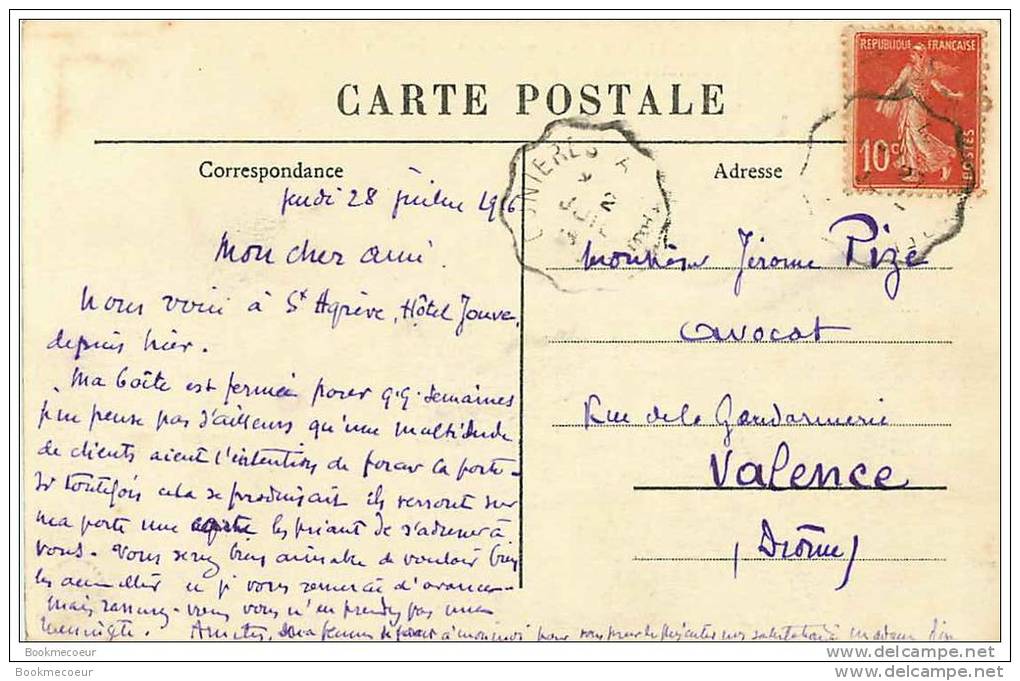 REPUBLIQUE FRANÇAISE
10c
POSTES
CARTE POSTALE
Correspondance
Adresse
Jeudi 28 juillet 196
Mon cher ami.
Nous voici à St Agrève, Hôtel Jouve,
depuis hier.
Ma boîte est fermée pour q.q. semaines
je ne pense pas d'ailleurs qu'une multitude
de clients aient l'intention de forcer la porte -
Si toutefois cela se produisait ils verront sur
ma porte une les priant de s'adresser à
vous - Vous serez bien aimable de vouloir bien
les accueillir et je vous remercie d'avance -
Mais rassurez-vous vous n'en prendrez pas une
Amitiés,
Monsieur Jérome Pize
avocat
Rue de la Gendarmerie
Valence
(Drôme)
Bookmecoeur
delcampe.net
Bookmecoeur
delcampe.net